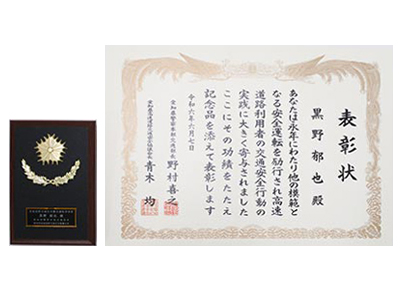 表彰状
黒野郁也 殿
あなたは永年にわたり他の模範と
なる安全運転を励行され高速
道路利用者の交通安全行動の
実践に大きく寄与されました
ここにその功績をたたえ
記念品を添えて表彰します
令和六年六月七日
愛知県警察本部交通部長 野村喜之
青木 均